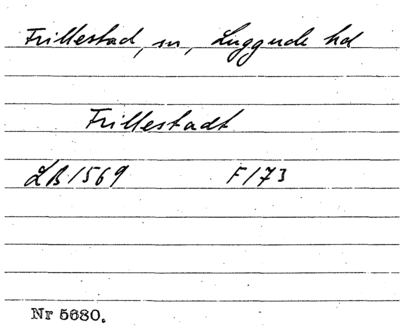 Frillestad, sn, Luggude hd
Frillestadt
LB 1569 F173
Nr 5680.